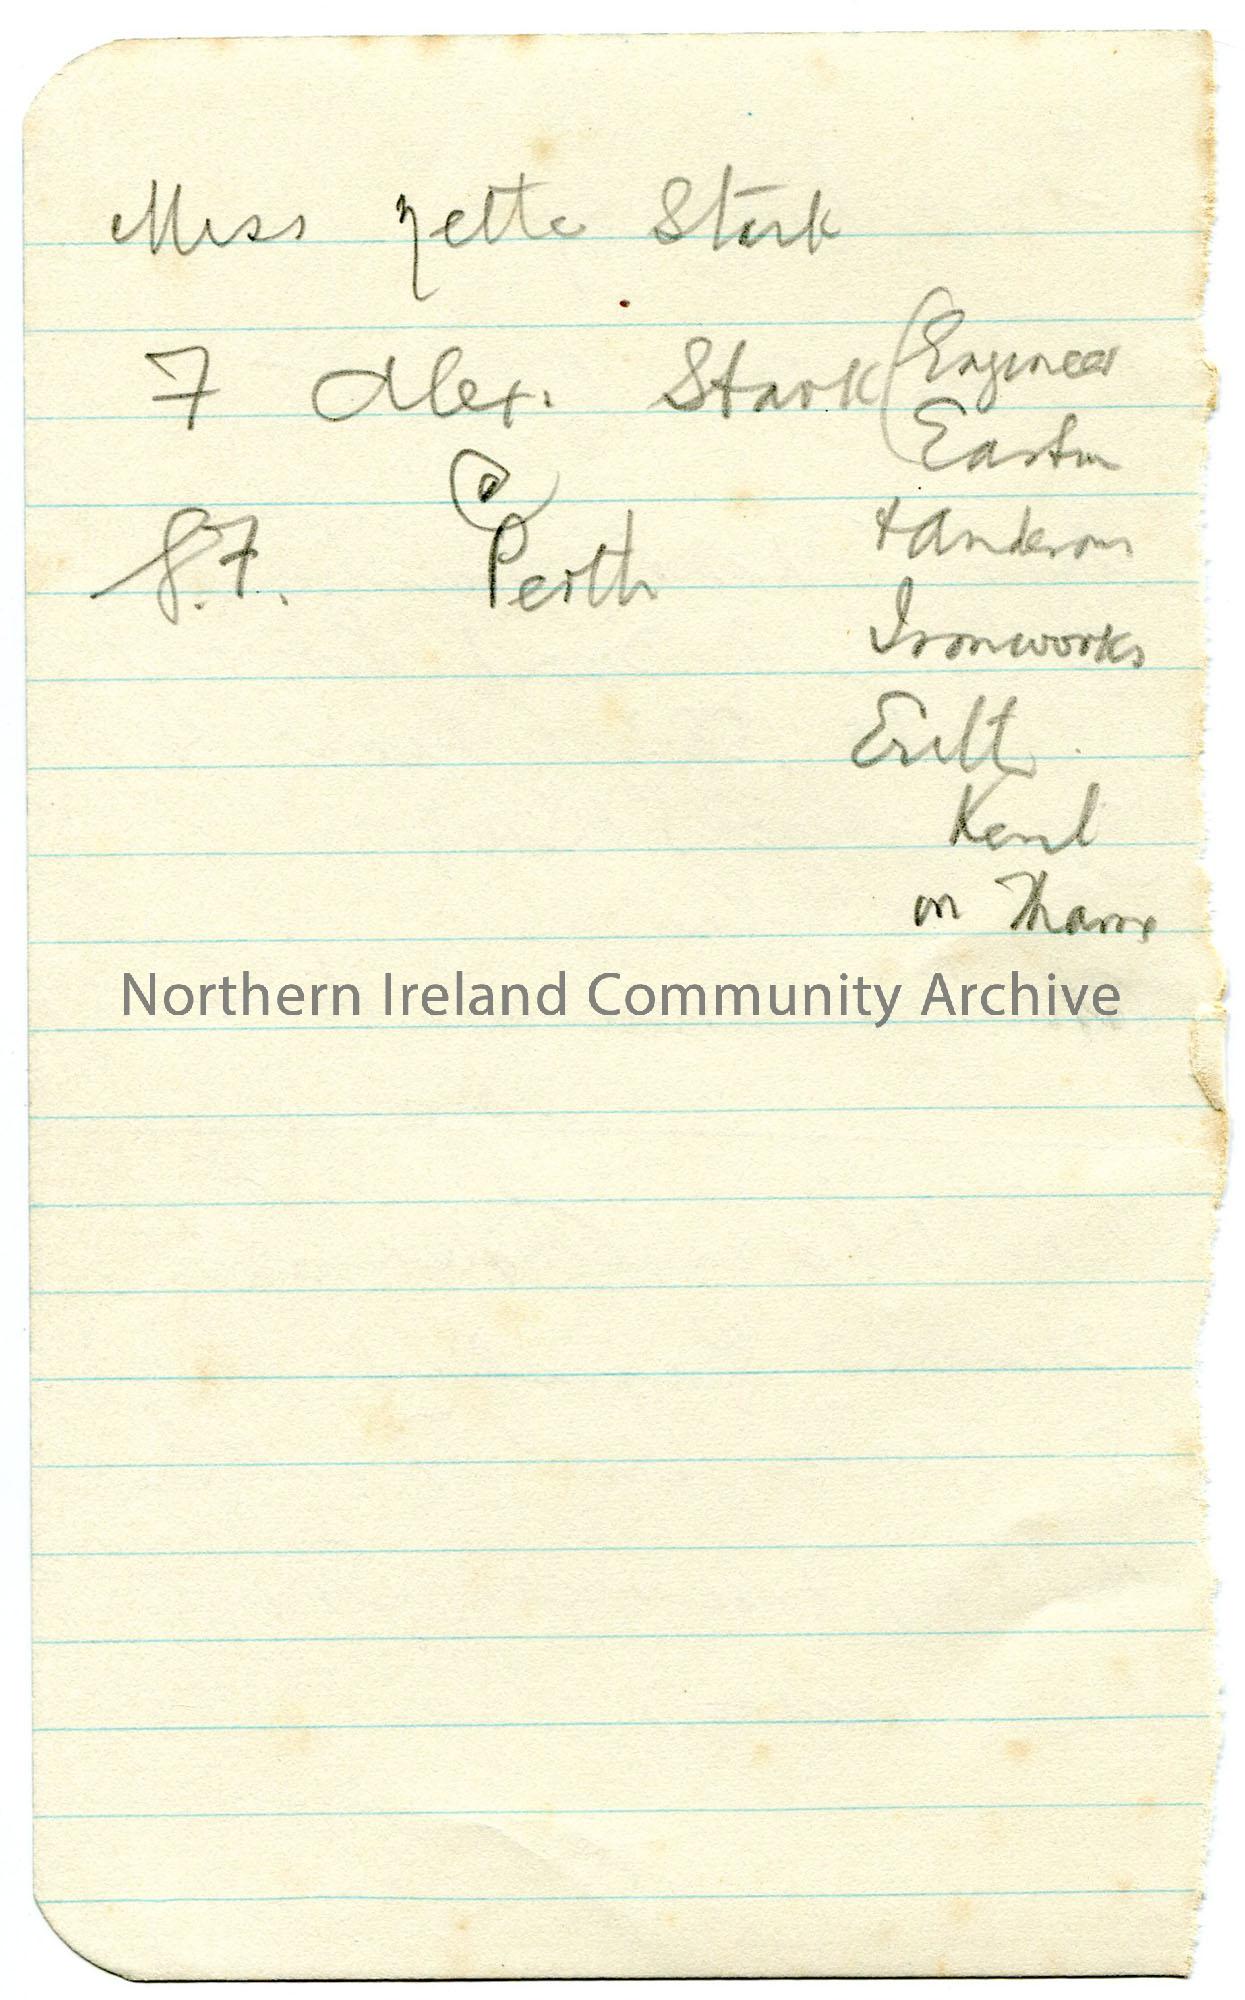 Miss Zette Stark
F Alex. Stark (Engineer
Easton
g.F. Perth
+ Anderson
Ironworks
Erith
Kent
on Thames
Northern Ireland Community Archive